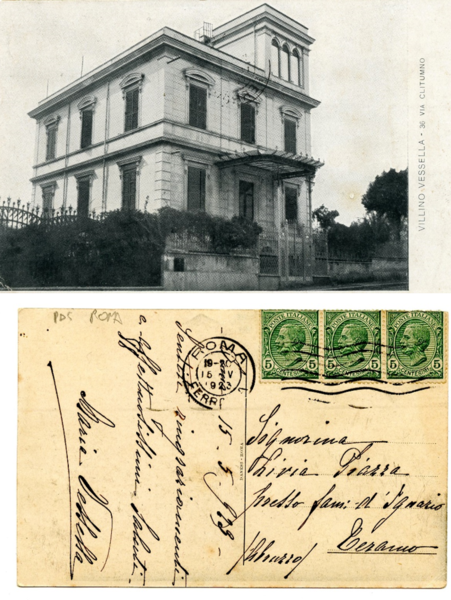 VILLINO VESSELLA - 36 VIA CLITUMNO
PDS ROMA
POSTE ITALIANE
5 CENTESIMI 5
POSTE ITALIANE
5 CENTESIMI 5
POSTE ITALIANE
5 CENTESIMI 5
ROMA
19-
15 V
1923
FERROVIA
15-5-923-
Sentiti ringraziamenti
e affettuosissimi saluti
Maria Vessella
Signorina
Livia Piazza
presso fam: d'Ignazio
Teramo
(Abruzzo)